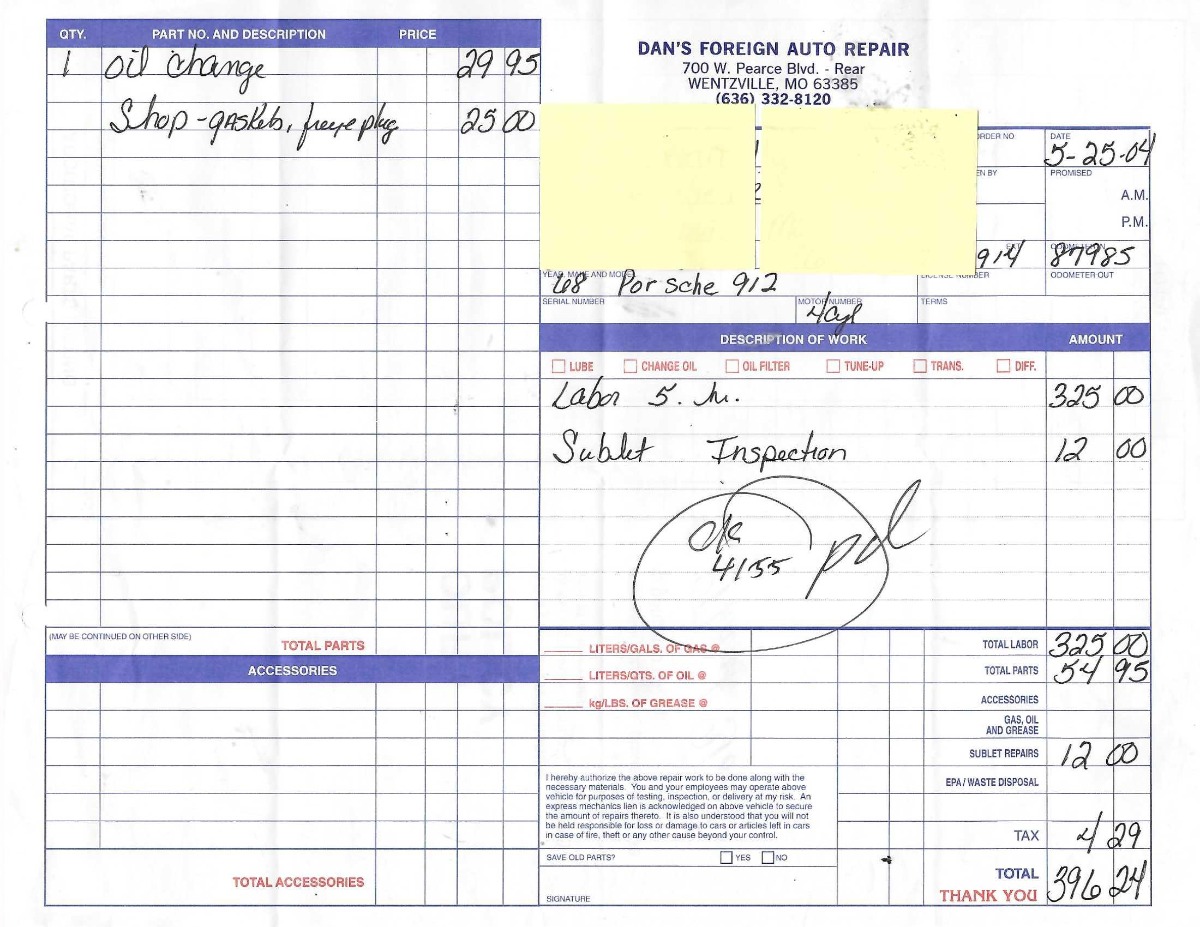 QTY. PART NO. AND DESCRIPTION PRICE
1 Oil change 29 95
Shop - gaskets, freeze plug 25 00
(MAY BE CONTINUED ON OTHER SIDE) TOTAL PARTS
ACCESSORIES
TOTAL ACCESSORIES
DAN'S FOREIGN AUTO REPAIR
700 W. Pearce Blvd. - Rear
WENTZVILLE, MO 63385
(636) 332-8120
ORDER NO
DATE
5-25-04
PROMISED
A.M.
P.M.
914 87985
ODOMETER OUT
YEAR, MAKE AND MODEL
68 Porsche 912
LICENSE NUMBER
SERIAL NUMBER MOTOR NUMBER TERMS
4cyl
DESCRIPTION OF WORK AMOUNT
LUBE CHANGE OIL OIL FILTER TUNE-UP TRANS. DIFF.
Labor 5. hr. 325 00
Sublet Inspection 12 00
ck pd
4155
LITERS/GALS. OF GAS @ TOTAL LABOR 325 00
LITERS/QTS. OF OIL @ TOTAL PARTS 54 95
kg/LBS. OF GREASE @ ACCESSORIES
GAS, OIL
AND GREASE
SUBLET REPAIRS 12 00
EPA / WASTE DISPOSAL
I hereby authorize the above repair work to be done along with the
necessary materials. You and your employees may operate above
vehicle for purposes of testing, inspection, or delivery at my risk. An
express mechanics lien is acknowledged on above vehicle to secure
the amount of repairs thereto. It is also understood that you will not
be held responsible for loss or damage to cars or articles left in cars
in case of fire, theft or any other cause beyond your control.
TAX 4 29
SAVE OLD PARTS? YES NO
TOTAL 396 24
THANK YOU
SIGNATURE